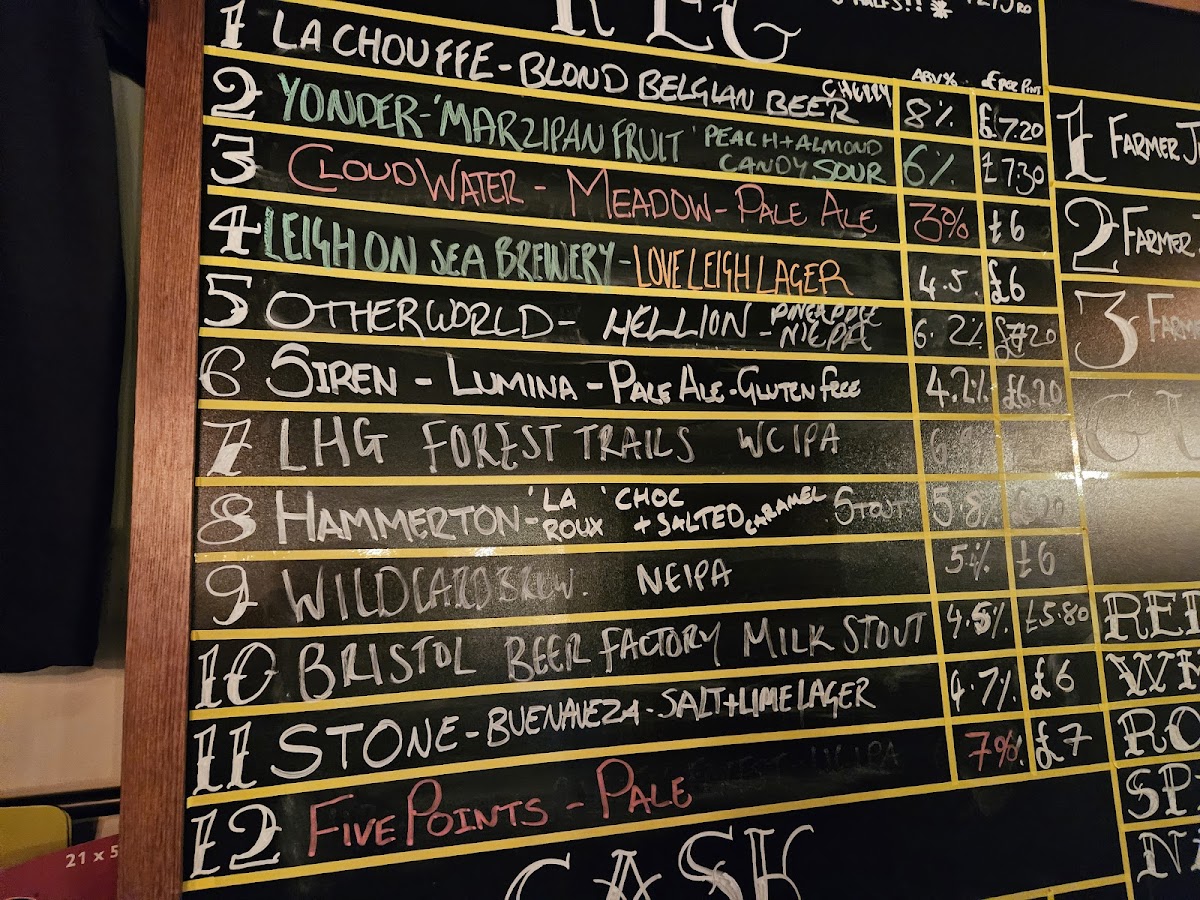 KEG
ABV% £ PER PINT
1 LA CHOUFFE - BLOND BELGIAN BEER CHERRY 8% £7.20
2 YONDER - 'MARZIPAN FRUIT' PEACH + ALMOND CANDY SOUR 6% £7.30
3 CLOUDWATER - MEADOW - PALE ALE 3% £6
4 LEIGH ON SEA BREWERY - LOVE LEIGH LAGER 4.5. £6
5 OTHERWORLD - HELLION - PINEAPPLE NEIPA 6.2% £7.20
6 SIREN - LUMINA - PALE ALE - GLUTEN FREE 4.2% £6.20
7 LHG FOREST TRAILS WC IPA
8 HAMMERTON - 'LA ROUX' CHOC + SALTED CARAMEL STOUT 5.8%
9 WILDCARD BREW. NEIPA 5% £6
10 BRISTOL BEER FACTORY MILK STOUT 4.5% £5.80
11 STONE - BUENAVEZA - SALT + LIME LAGER 4.7% £6
12 FIVE POINTS - PALE 7% £7
CASK
1 FARMER J
2 FARMER
3 FARM
21 x 5